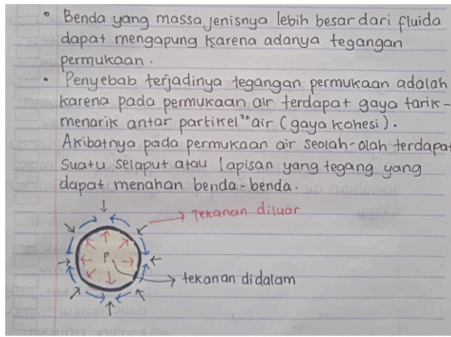 • Benda yang massa jenisnya lebih besar dari fluida
dapat mengapung karena adanya tegangan
permukaan.
• Penyebab terjadinya tegangan permukaan adalah
karena pada permukaan air terdapat gaya tarik-
menarik antar partikel" air (gaya kohesi).
Akibatnya pada permukaan air seolah-olah terdapat
suatu selaput atau lapisan yang tegang yang
dapat menahan benda-benda.
Tekanan diluar
P
tekanan didalam